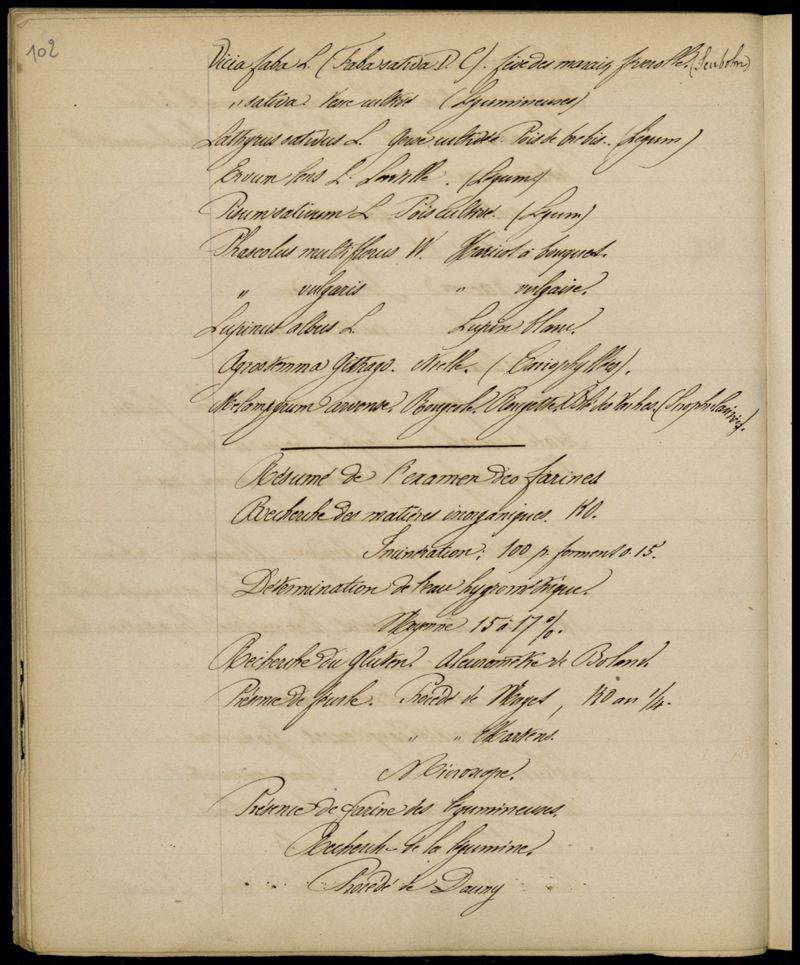 102
Vicia faba L. (Faba sativa D. C). fève des marais,
„ sativa Vesce cultivée (Légumineuses)
Lathyrus sativus L. Gesse cultivée. Pois de brebis. (Légum)
Ervum lens L. Lentille. (Légum)
Pisum sativum L Pois cultivé. (Légum)
Phaseolus multiflorus W. Haricot à bouquets.
„ vulgaris „ vulgaire.
Lupinus albus L. Lupin blanc.
Agrostemma Githago. Nielle. (Cariophyllées).
Melampyrum arvense. Rougeole. Rougette. Blé des Vaches.
Résumé de l'examen des farines
Recherche des matières inorganiques. KO.
Incinération: 100 p. forment 0.15.
Détermination de l'eau hygrométrique.
Moyenne 15 à 17 %.
Recherche du gluten. Aleuromètre de Boland.
Présence de fécule. Procédé de Mayet, KO au 1/4.
„ „ Martens.
Microscope.
Présence de farine des légumineuses.
Recherche de la légumine.
Procédé de